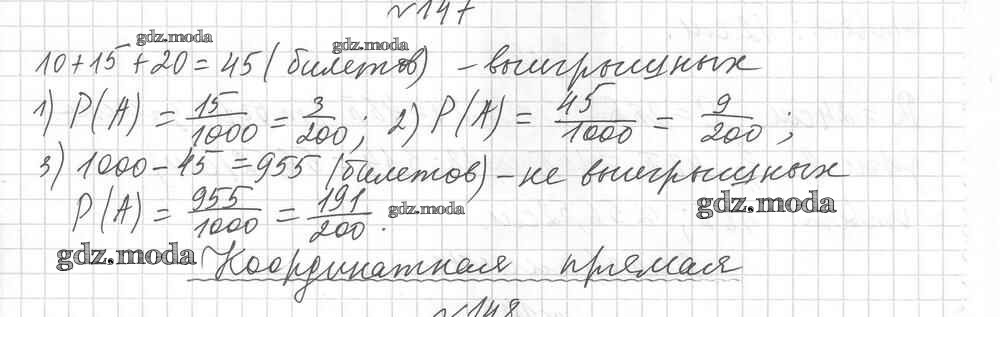 №147
10+15+20=45 (билетов) - выигрышных
1) P(A) = 15/1000 = 3/200; 2) P(A) = 45/1000 = 9/200;
3) 1000-45=955 (билетов) - не выигрышных
P(A) = 955/1000 = 191/200.
Координатная прямая
№148
gdz.moda
gdz.moda
gdz.moda
gdz.moda
gdz.moda